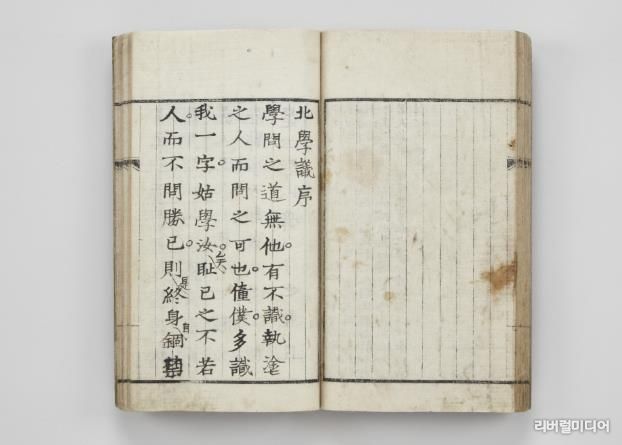 北學議序
學問之道無他。有不識。執塗
之人而問之可也。僮僕。多識
我一字。姑學汝。恥己之不若
人。而不問勝己。則是終身自錮
리버럴미디어